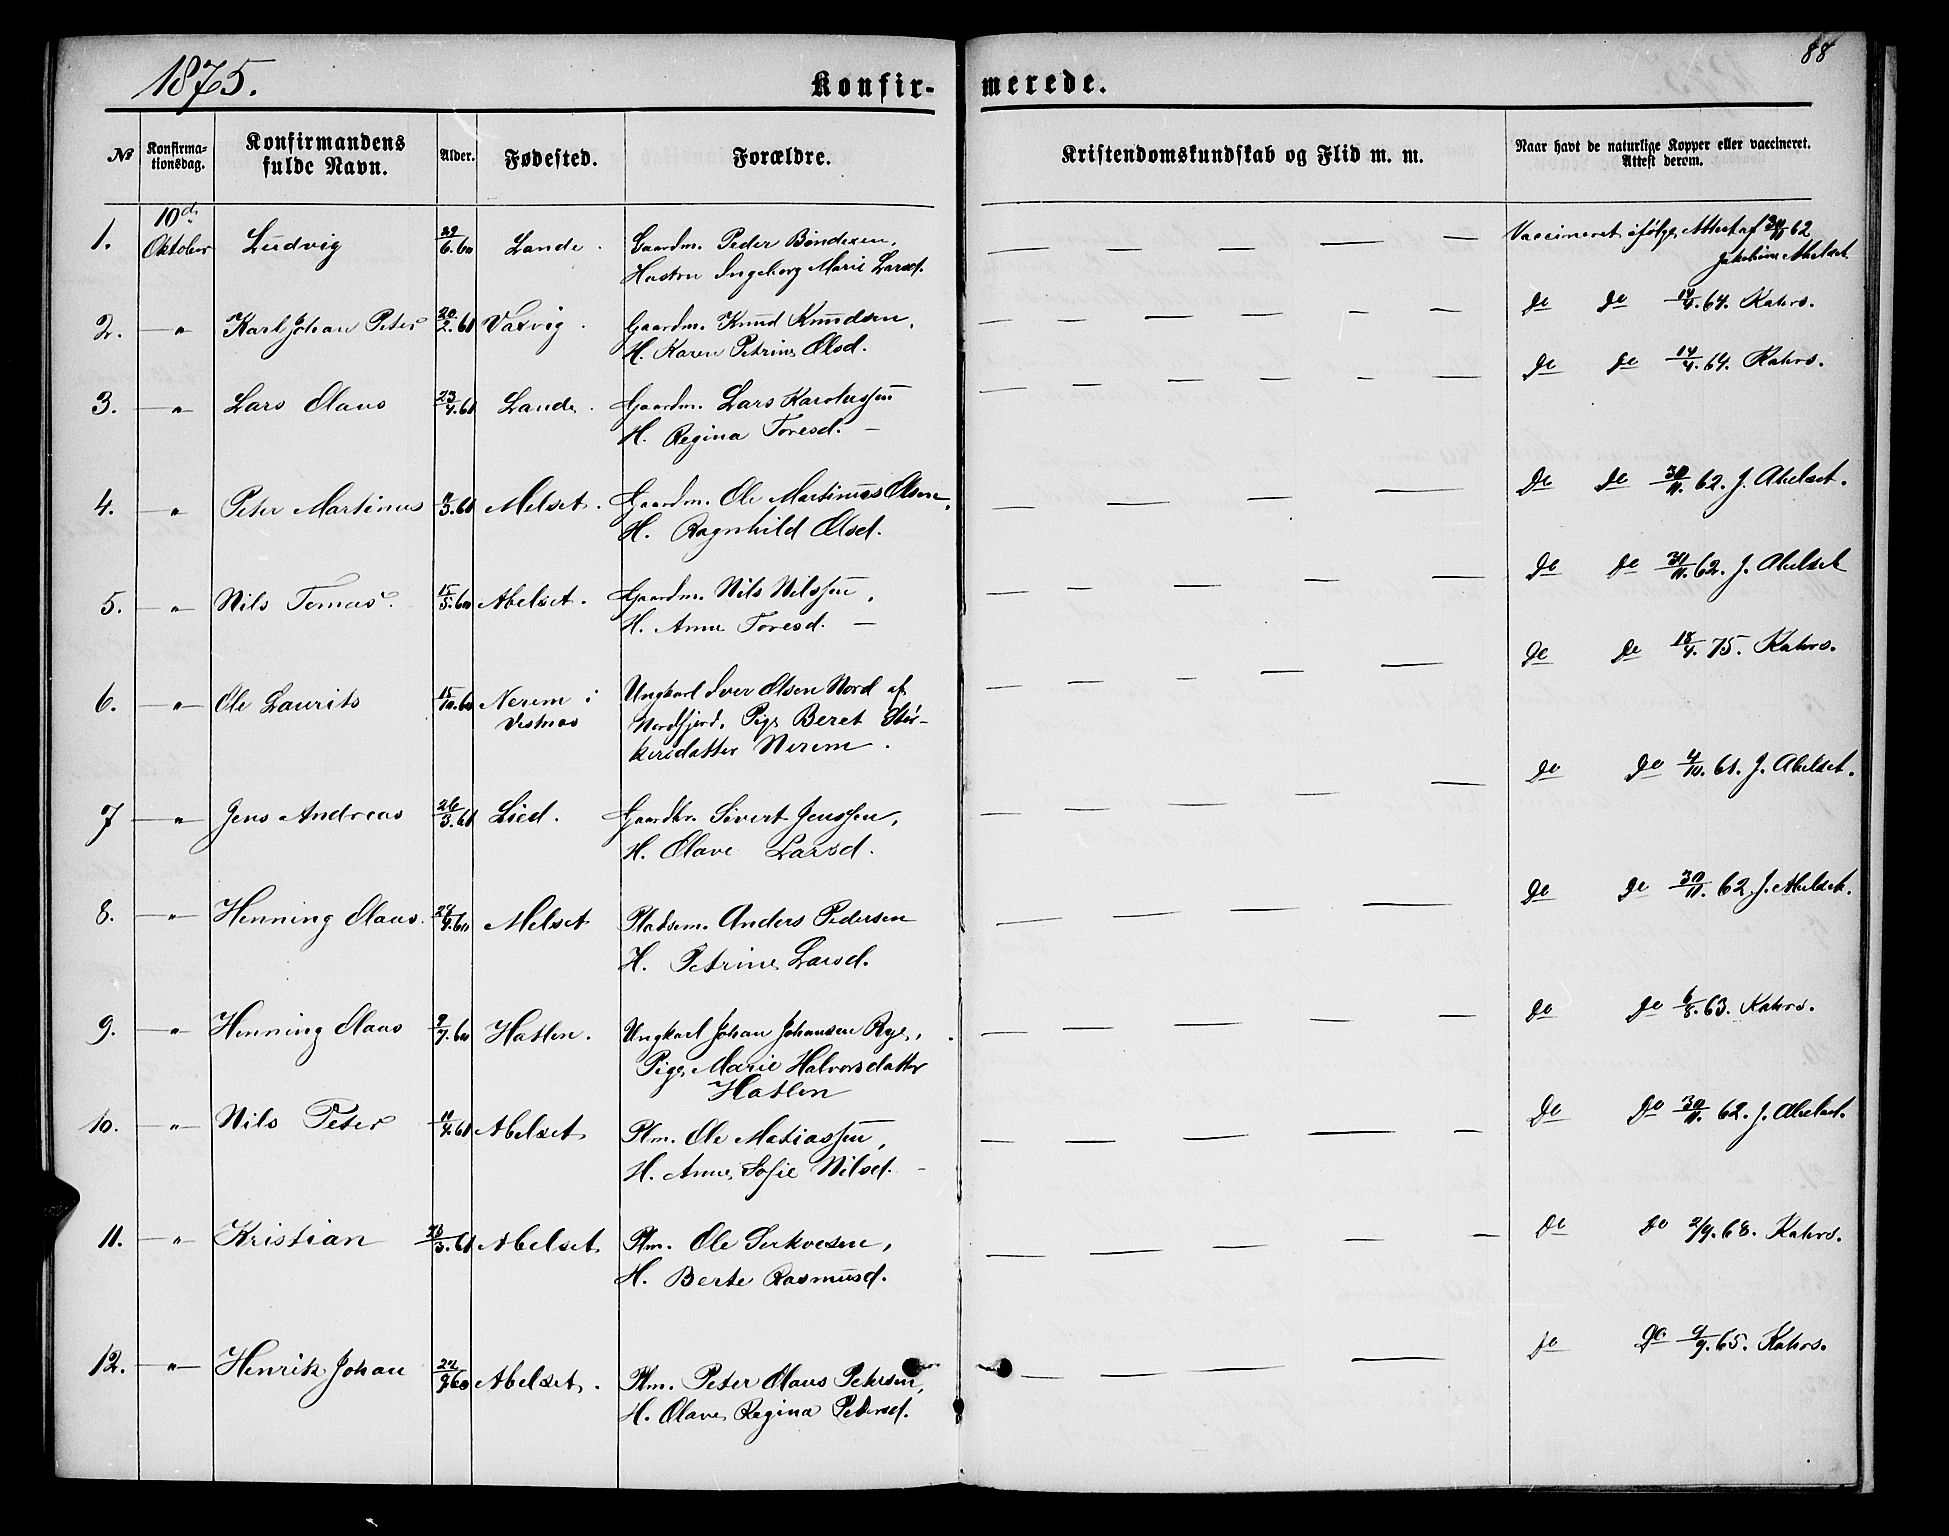 1875.
88
Konfir-
merede.
№
Konfirma-
tionsdag.
Konfirmandens
fulde Navn.
Alder.
Fødested.
Forældre.
Kristendomskundskab og Flid m. m.
Naar havt de naturlige Kopper eller vaccineret.
Attest derom.
1. 10de Oktober Ludvig 29/6.60 Lande. Gaardm. Peder Bendixen, — — — — — Vaccineret ifølge Attest af 30/11 62
Hustru Ingeborg Marie Larsd. Abelset.
2. — „ — Karl Johan Peter 20/2.61 Varvig. Gaardm. Knud Knudsen, — — — — — — Do Do 14/4.64. Kahrs.
H. Karen Petrine Olsd.
3. — „ — Lars Olaus 23/4.61 Lande. Gaardm. Lars — — — — — — Do Do 14/4.64. Kahrs.
H. Regina Toresd. —
4. — „ — Peter Martinus /3.61 Melset. Gaardm. Ole Martinus Olsen, — — — — Do Do 30/11.62. J. Abelset.
H. Ragnhild Olsd.
5. — „ — Nils Tomas. 15/5.60 Abelset. Gaardm. Nils Nilssen, — — — — — Do Do 30/11.62. J. Abelset
H. Anne Toresd. —
6. — „ — Ole Laurits 15/10.60 Nerem i Ungkarl Iver Olsen Nord af — — — — Do Do 18/4.75. Kahrs.
Vestnæs Nordfjord. Pige Beret Stor-
kersdatter Nerem.
7 — „ — Jens Andreas 26/3.61 Lied. Gaardbr. Sivert Jenssen, — — — — — Do Do 4/10.61. J. Abelset.
H. Olave Larsd.
8. — „ — Henning Olaus. 24/4.60 Melset Pladsem. Anders Pedersen — — — — Do Do 30/11.62. J. Abelset.
H. Petrine Larsd.
9. — „ — Henning Olaus 9/7.60 Hatlen. Ungkarl Johan Johansen Rye, — — — — — Do Do 6/8.63. Kahrs.
Pige Marie Halvorsdatter
Hatlen
10. — „ — Nils Peter 11/4.61 Abelset Plm. Ole Matiassen, — — — — — Do Do 30/11.62. J. Abelset.
H. Anne Sofie Nilsd. —
11. — „ — Kristian /3.61 Abelset Plm. Ole — — — — — Do Do 2/9.68. Kahrs.
H. Berte Rasmusd.
12. — „ — Henrik Johan 22/9.60 Abelset. Plm. Peter Olaus Petersen, — — — — Do Do 9/9.65. Kahrs.
H. Olave Regina Pedersd.